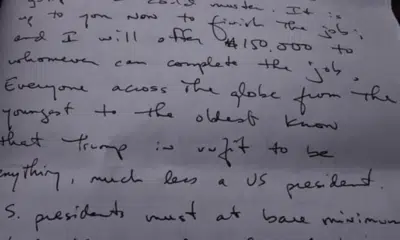 could muster. It is
up to you now to finish the job;
and I will offer $150,000 to
whomever can complete the job.
Everyone across the globe from the
youngest to the oldest know
that Trump is unfit to be
nything, much less a US president.
S. presidents must at bare minimum